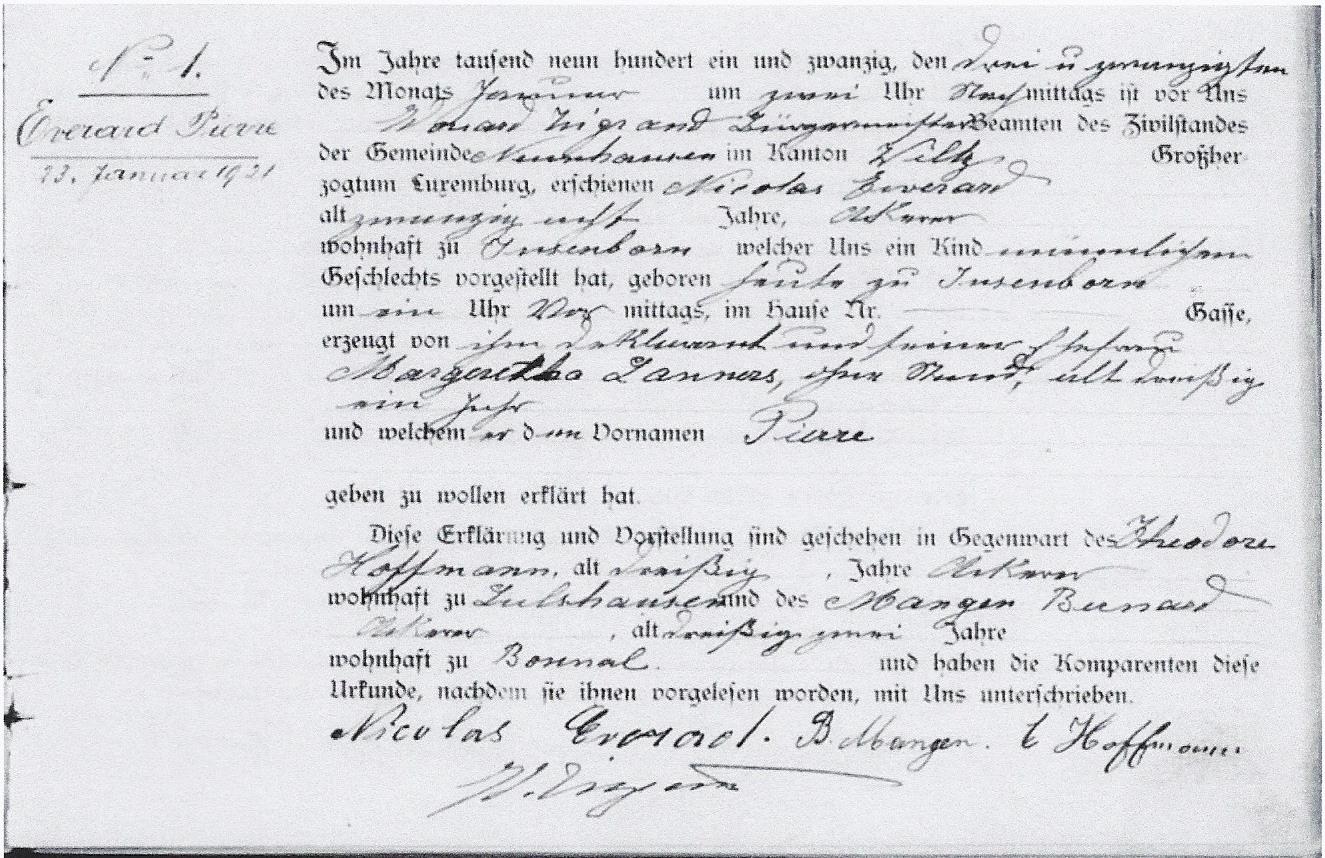 No 1.
Everard Pierre
23. Januar 1921
Im Jahre tausend neun hundert ein und zwanzig, den drei u zwanzigsten
des Monats Januar um zwei Uhr Nachmittags ist vor Uns
Bürgermeister Beamten des Zivilstandes
der Gemeinde Neunhausen im Kanton Wiltz Großher-
zogtum Luxemburg, erschienen Nicolas Everard
alt zwanzig acht Jahre, Ackerer
wohnhaft zu Insenborn welcher Uns ein Kind männlichen
Geschlechts vorgestellt hat, geboren heute zu Insenborn
um ein Uhr Vor mittags, im Hause Nr. Gasse,
erzeugt von ihm Deklarant und seiner Ehefrau
Margeretha Lanners, ohne Stand, alt dreißig
ein Jahr
und welchem er den Vornamen Pierre
geben zu wollen erklärt hat.
Diese Erklärung und Vorstellung sind geschehen in Gegenwart des Theodore
Hoffmann, alt dreißig, Jahre Ackerer
wohnhaft zu Lultzhausen und des Mangen Bernard
Ackerer, alt dreißig zwei Jahre
wohnhaft zu Bonnal. und haben die Komparenten diese
Urkunde, nachdem sie ihnen vorgelesen worden, mit Uns unterschrieben.
Nicolas Everard. B. Mangen. t Hoffmann